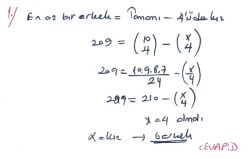 1/ En az bir erkek = Tamamı - 4'üde kız
209 = (10 4) - (x 4)
209 = 10.9.8.7 / 24 - (x 4)
209 = 210 - (x 4)
x = 4 olmalı
x = kız → 6 erkek
CEVAP: D